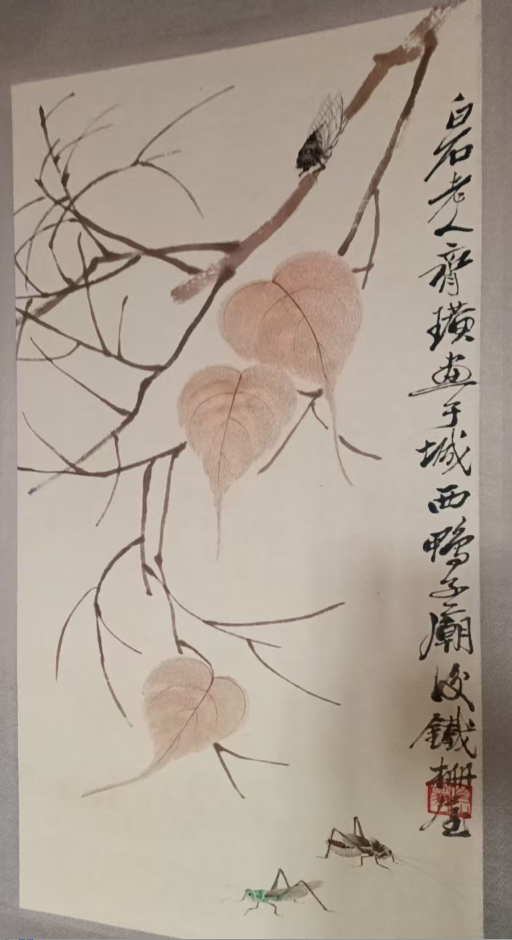 白石老人齊璜畫于城西鴨子廟後鐵柵屋